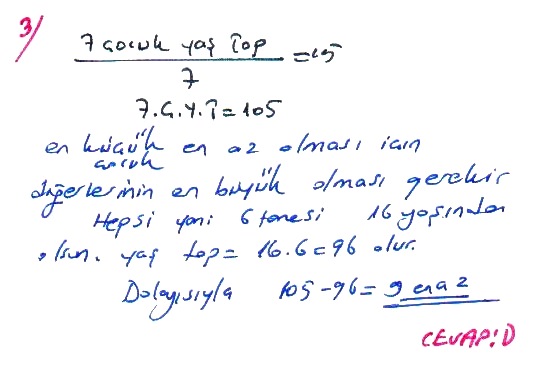 3/
7 çocuk yaş Top = 15
7
7.Ç.Y.T = 105
en küçük en az olması için
çocuk
diğerlerinin en büyük olması gerekir
Hepsi yani 6 tanesi 16 yaşından
olsun. yaş top = 16.6 = 96 olur.
Dolayısıyla 105 - 96 = 9 en az
CEVAP: D